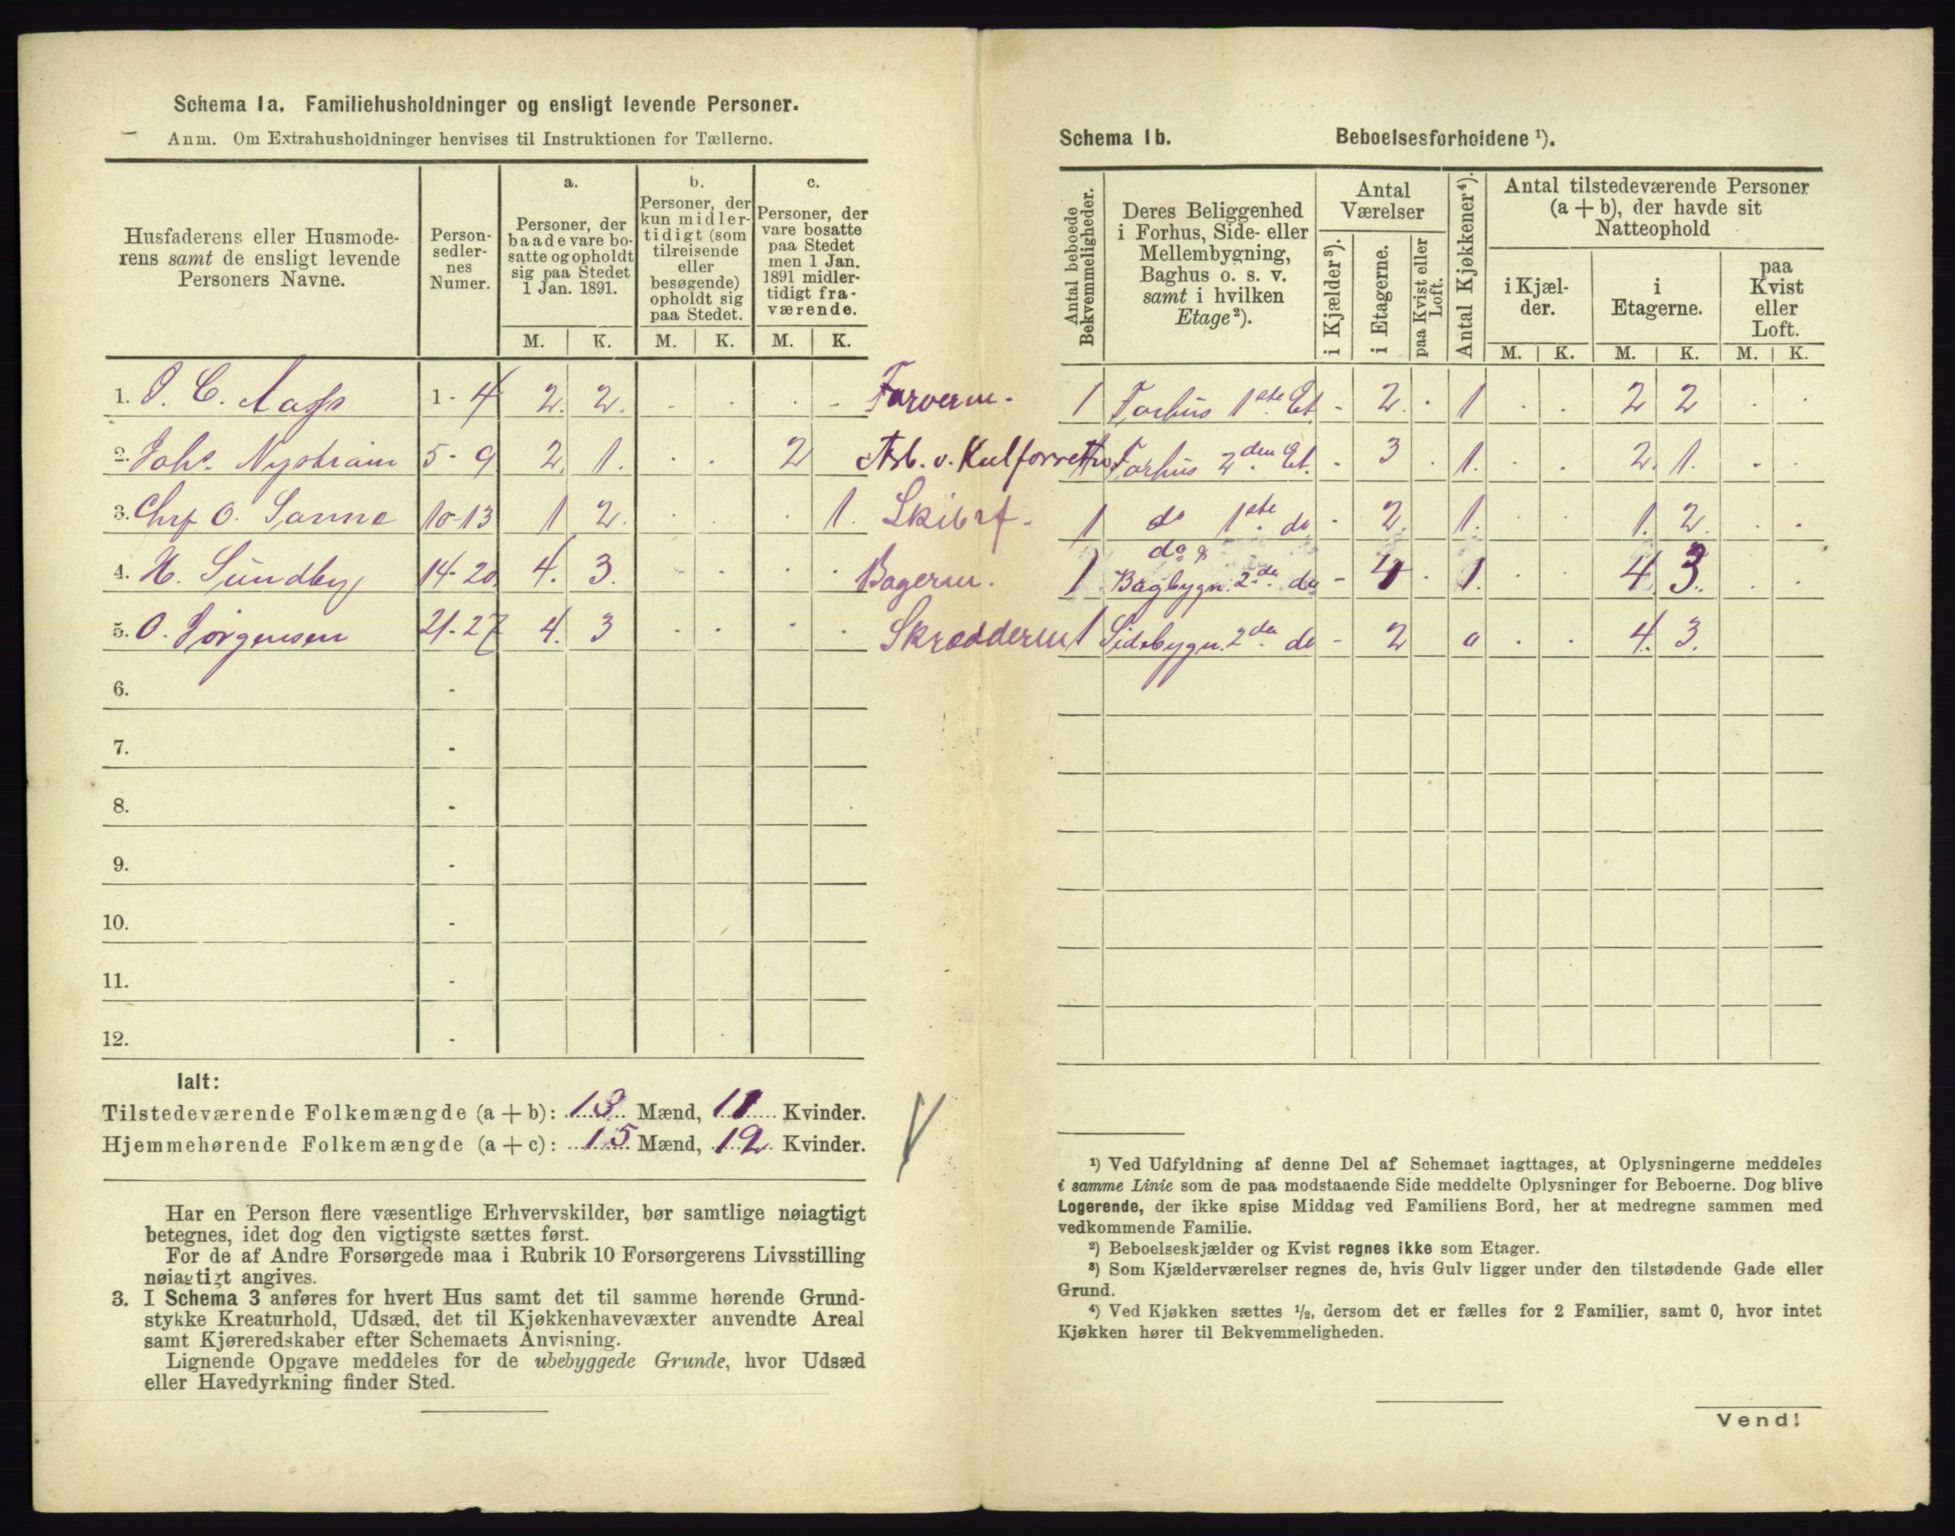 Schema 1a. Familiehusholdninger og ensligt levende Personer.
Anm. Om Extrahusholdninger henvises til Instruktionen for Tællerne.
Husfaderens eller Husmoderens samt de ensligt levende Personers Navne.
Personsedlernes Numer.
a.
Personer, der baade vare bosatte og opholdt sig paa Stedet 1 Jan. 1891.
b.
Personer, der kun midlertidigt (som tilreisende eller besøgende) opholdt sig paa Stedet.
c.
Personer, der vare bosatte paa Stedet men 1 Jan. 1891 midlertidigt fraværende.
M. K. M. K. M. K.
1. O. C. Aass 1 - 4 2. 2. - . . - Farverm.
2. Johs. Nystrøm 5 - 9 2. 1. . . 2 Arb. v. Kulforretn
3. Chrf O. Sanne 10-13 1 2. . 1. Skibsf.
4. H. Sundby 14-20. 4. 3. - . . . Bagerm.
5. O. Jørgensen 21-27 4. 3 . . . . Skrædderm
6. -
7. -
8. -
9. -
10. -
11. -
12. -
Ialt:
Tilstedeværende Folkemængde (a + b): 13 Mænd, 11 Kvinder.
Hjemmehørende Folkemængde (a + c): 15 Mænd, 12 Kvinder.
Har en Person flere væsentlige Erhvervskilder, bør samtlige nøiagtigt
betegnes, idet dog den vigtigste sættes først.
For de af Andre Forsørgede maa i Rubrik 10 Forsørgerens Livsstilling
nøiagtigt angives.
3. I Schema 3 anføres for hvert Hus samt det til samme hørende Grund-
stykke Kreaturhold, Udsæd, det til Kjøkkenhavevæxter anvendte Areal
samt Kjøreredskaber efter Schemaets Anvisning.
Lignende Opgave meddeles for de ubebyggede Grunde, hvor Udsæd
eller Havedyrkning finder Sted.
Schema 1b. Beboelsesforholdene ¹).
Antal beboede Bekvemmeligheder.
Deres Beliggenhed i Forhus, Side- eller Mellembygning, Baghus o. s. v. samt i hvilken Etage²).
Antal Værelser
i Kjælder³).
i Etagerne.
paa Kvist eller Loft.
Antal Kjøkkener⁴).
Antal tilstedeværende Personer (a + b), der havde sit Natteophold
i Kjælder.
i Etagerne.
paa Kvist eller Loft.
M. K. M. K. M. K.
1 Forhus 1ste Et - 2. . 1 . . 2 2 . .
1 Forhus 2den Et. - 3 . 1. . . 2. 1. . .
1 do 1ste do - 2. 1. . . 1. 2. . .
1 do & Bagbygn. 2de do - 4 . 1. . . 4. 3. . .
1 Sidebygn. 2de do - 2 0 . . 4. 3.
¹) Ved Udfyldning af denne Del af Schemaet iagttages, at Oplysningerne meddeles
i samme Linie som de paa modstaaende Side meddelte Oplysninger for Beboerne. Dog blive
Logerende, der ikke spise Middag ved Familiens Bord, her at medregne sammen med
vedkommende Familie.
²) Beboelseskjælder og Kvist regnes ikke som Etager.
³) Som Kjælderværelser regnes de, hvis Gulv ligger under den tilstødende Gade eller
Grund.
⁴) Ved Kjøkken sættes ½, dersom det er fælles for 2 Familier, samt 0, hvor intet
Kjøkken hører til Bekvemmeligheden.
Vend!